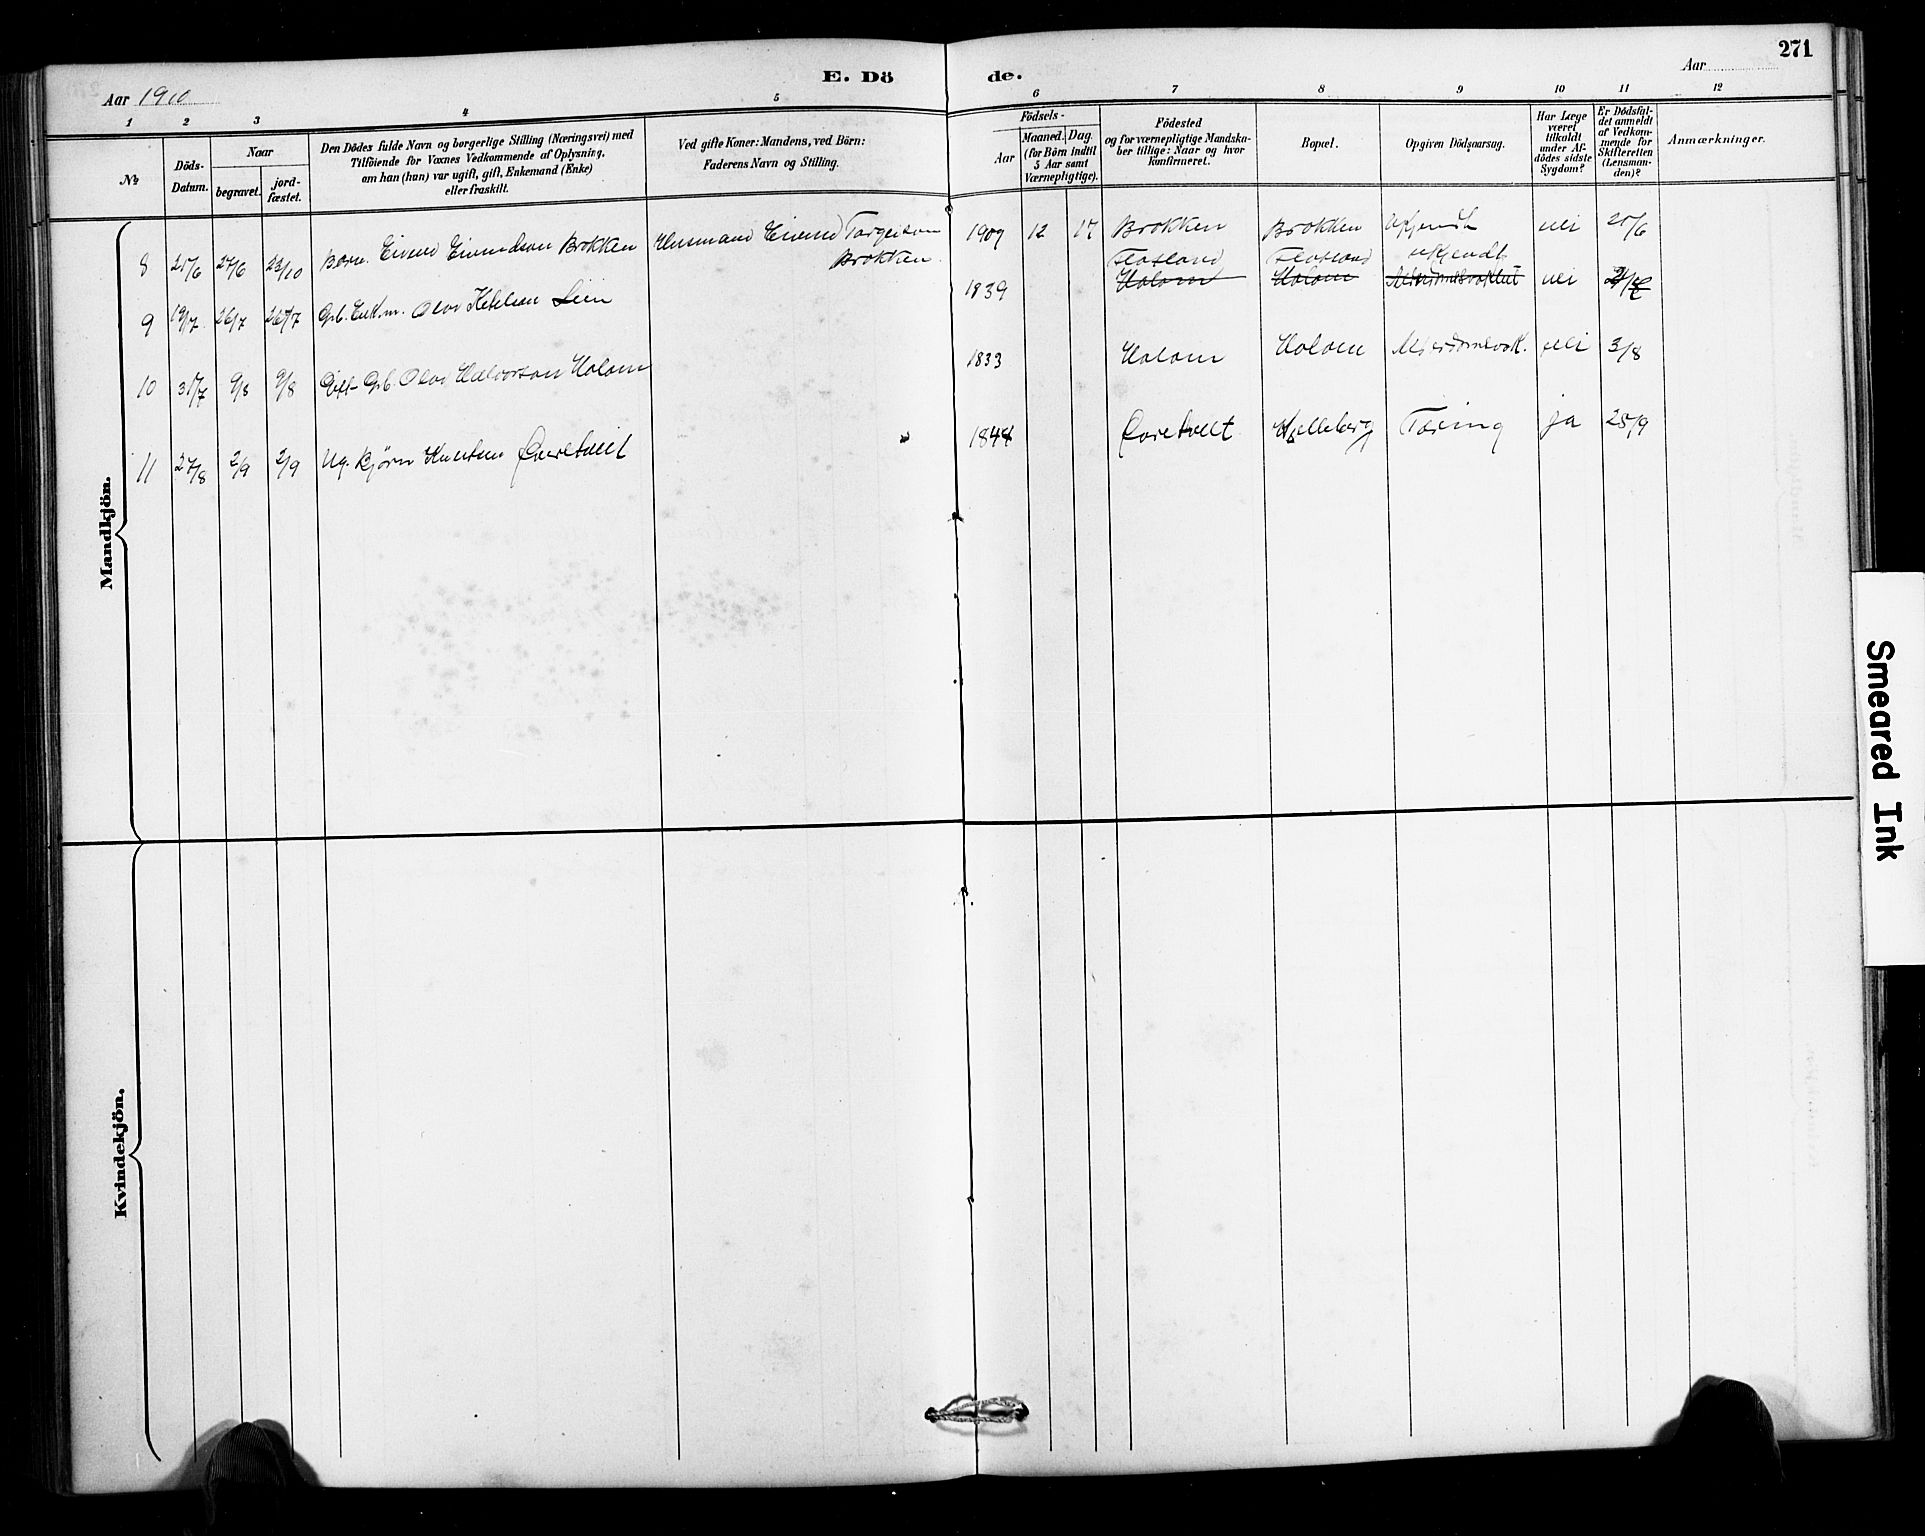 271
E. Dö de.
Aar 1910
Aar
1 2 3 4 5 6 7 8 9 10 11 12
№
Döds-
Datum.
Naar
begravet.
jord-
fæstet.
Den Dödes fulde Navn og borgerlige Stilling (Næringsvei) med
Tilföiende for Voxnes Vedkommende af Oplysning,
om han (hun) var ugift, gift, Enkemand (Enke)
eller fraskilt.
Ved gifte Koner: Mandens, ved Börn:
Faderens Navn og Stilling.
Födsels-
Aar
Maaned.
Dag.
(for Börn indtil
5 Aar samt
Værnepligtige).
Födested
og for værnepligtige Mandska-
ber tillige: Naar og hvor
konfirmeret.
Bopæl.
Opgiven Dödsaarsag.
Har Læge
været
tilkaldt
under Af-
dödes sidste
Sygdom?
Er Dödsfal-
det anmeldt
af Vedkom-
mende for
Skifteretten
(Lensman-
den)?
Anmærkninger.
Mandkjön.
8 21/6 27/6 23/10 Barn. Eivind Eivindson Brokken Husmand Eivind Torgeison Brokken 1909 12 17 Brokken Brokken ukjendt nei 21/6
9 19/7 26/7 26/7 Gb. Enkm. Olav Ketelson Lien 1839 Flatland Holom Flatland Holom ukjendt nei
10 31/7 9/8 9/8 Gift Gb. Olav Halvorson Holom 1833 Holom Holom Alderdomssvak. nei 3/8
11 27/8 2/9 2/9 Ug. Bjørn Knutson 1844 Hjelleberg Tæring ja 25/9
Kvindekjön.
Smeared Ink